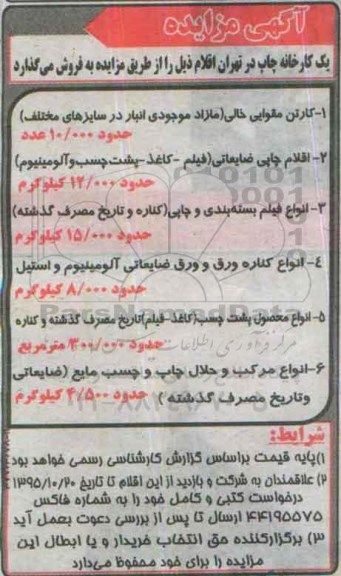 آگهی مزایده
یک کارخانه چاپ در تهران اقلام ذیل را از طریق مزایده به فروش می‌گذارد
۱-کارتن مقوایی خالی(مازاد موجودی انبار در سایزهای مختلف)
حدود ۱۰/۰۰۰ عدد
۲- اقلام چاپی ضایعاتی(فیلم -کاغذ-پشت‌چسب‌وآلومینیوم)
حدود ۱۲/۰۰۰ کیلوگرم
۳- انواع فیلم بسته‌بندی و چاپی(کناره و تاریخ مصرف گذشته)
حدود ۱۵/۰۰۰ کیلوگرم
۴- انواع کناره ورق و ورق ضایعاتی آلومینیوم و استیل
حدود ۸/۰۰۰ کیلوگرم
۵- انواع محصول پشت چسب(کاغذ-فیلم)تاریخ مصرف گذشته و کناره
حدود ۳۰۰/۰۰۰ مترمربع
۶-انواع مرکب و حلال چاپ و چسب مایع (ضایعاتی
وتاریخ مصرف گذشته ) حدود ۴/۵۰۰ کیلوگرم
شرایط:
۱)پایه قیمت براساس گزارش کارشناسی رسمی خواهد بود
۲) علاقمندان به شرکت و بازدید از این اقلام تا تاریخ ۱۳۹۵/۱۰/۲۰
درخواست کتبی و کامل خود را به شماره فاکس
۴۴۱۹۵۵۷۵ ارسال تا پس از بررسی دعوت بعمل آید
۳) برگزارکننده حق انتخاب خریدار و یا ابطال این
مزایده را برای خود محفوظ می‌دارد